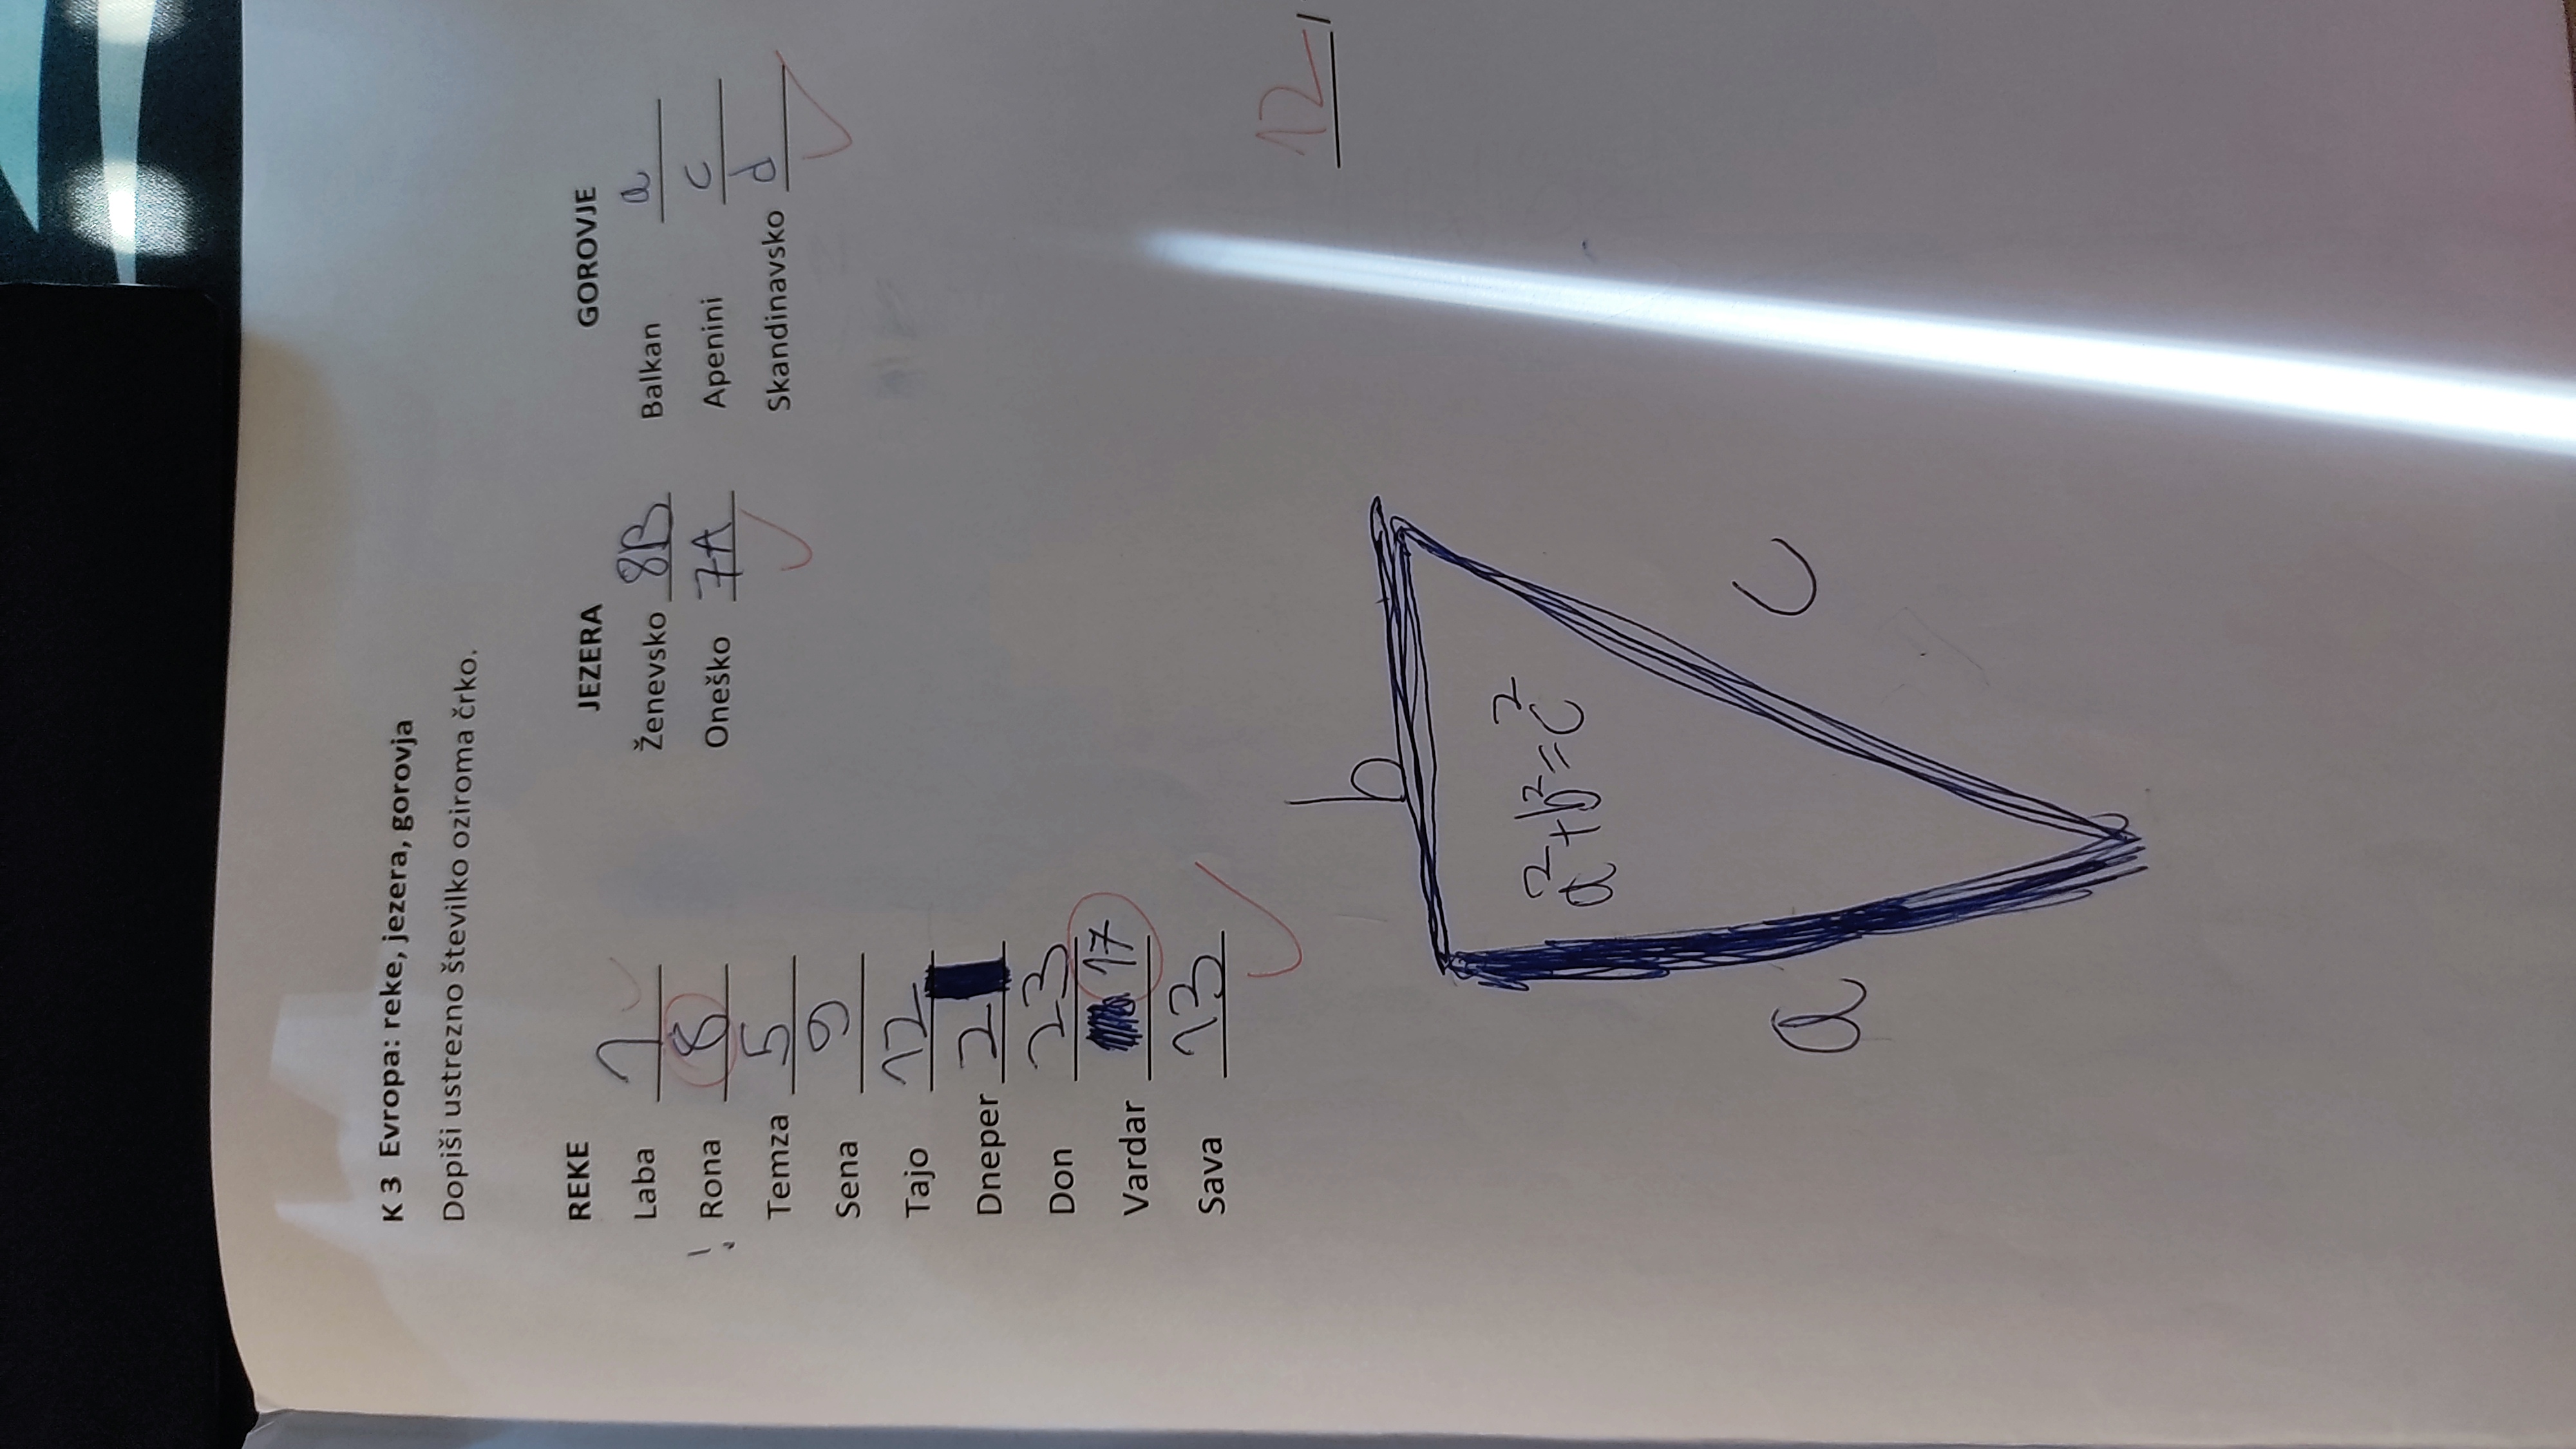 K 3 Evropa: reke, jezera, gorovja
Dopiši ustrezno številko oziroma črko.
REKE
Laba 1
! Rona 8
Temza 5
Sena 9
Tajo 12
Dneper 2
Don 23
Vardar 17
Sava 13
JEZERA
Ženevsko 8B
Oneško 7A
GOROVJE
Balkan a
Apenini c
Skandinavsko d
12
b
a²+b²=c²
a
c